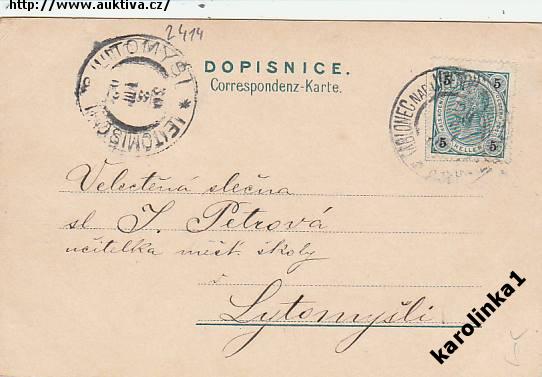 http://www.auktiva.cz/
2414
LITOMYŠL * LEITOMISCHL
DOPISNICE.
Correspondenz-Karte.
JABLONEC NAD
5 5
5 HELLER 5
Velectěná slečna
sl. J. Petrová
učitelka měšť. školy
v
Lytomyšli.
karolinka1